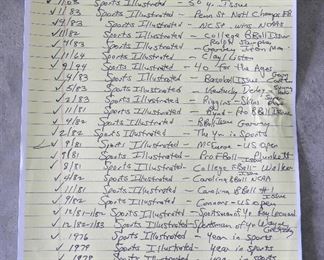 ✓ 11/83 Sports Illustrated - 50 yr. Issue
✓ 1/83 Sports Illustrated - Penn St Nat'l Champs FB
✓ 4/83 Sports Illustrated - NC St. wins NCAA
✓ 11/82 Sports Illustrated - College BBall Issue
Ralph Sampson
✓ 4/83 Sports Illustrated - Garvey Iron Man
✓ 11/64 Sports Illustrated - Clay/Liston
✓ 9/94 Sports Illustrated - 40 for the Ages
✓ 4/83 Sports Illustrated - Baseball Issue Gary Carter
✓ 5/83 Sports Illustrated - Kentucky Derby
✓ 2/83 Sports Illustrated - Riggins - Skins
✓ 11/81 Sports Illustrated - Pro BBall Issue
✓ 4/82 Sports Illustrated - BBall Issue Garvey
✓ 2/82 Sports Illustrated - The yr in Sports
✓ 9/81 Sports Illustrated - McEnroe - US Open
✓ 9/81 Sports Illustrated - Pro FBall - Plunkett
✓ 8/81 Sports Illustrated - College FBall - Walker Issue
✓ 4/82 Sports Illustrated - Carolina NCAA
✓ 11/81 Sports Illustrated - Carolina BBall #1 Issue
✓ 9/82 Sports Illustrated - Connors - US Open
✓ 12/81-1/82 Sports Illustrated - Sportsman of yr Ray Leonard
✓ 12/82-1/83 Sports Illustrated - Sportsman of yr Wayne Gretzky
✓ 1976 Sports Illustrated - year in sports
✓ 1979 Sports Illustrated - year in sports
✓ 1978 Sports Illustrated - year in sports